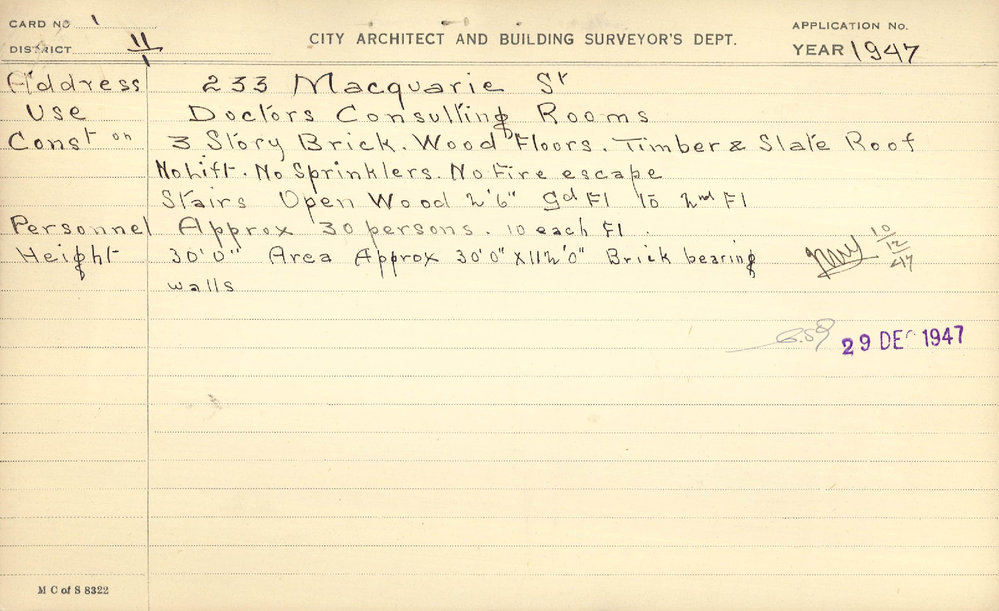 CARD No 1
DISTRICT 11
CITY ARCHITECT AND BUILDING SURVEYOR'S DEPT.
APPLICATION No.
YEAR 1947
Address 233 Macquarie St
Use Doctors Consulting Rooms
Const on 3 Story Brick. Wood Floors. Timber & Slate Roof
No lift. No Sprinklers. No Fire escape
Stairs Open Wood 2'6" Gd Fl to 2nd Fl
Personnel Approx 30 persons. 10 each Fl.
Height 30'0" Area Approx 30'0" X 112'0" Brick bearing
walls
10/12/47
29 DEC 1947
M C of S 8322